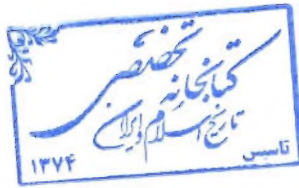 کتابخانه تخصصی
تاریخ اسلام و ایران
تاسیس
۱۳۷۴